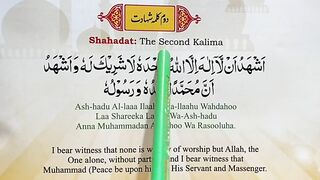 دوم کلمہ شہادت
Shahadat: The Second Kalima
اَشْهَدُ اَنْ لَّا اِلٰهَ اِلَّا اللّٰهُ وَحْدَهٗ لَا شَرِيْكَ لَهٗ وَاَشْهَدُ
اَنَّ مُحَمَّدًا عَبْدُهٗ وَرَسُوْلُهٗ
Ash-hadu Al-laaa Ilaaha -laahu Wahdahoo
Laa Shareeka La Wa-Ash-hadu
Anna Muhammadan A hoo Wa Rasooluha.
I bear witness that none is w of worship but Allah, the
One alone, without part and I bear witness that
Muhammad (Peace be upon hi His Servant and Messenger.